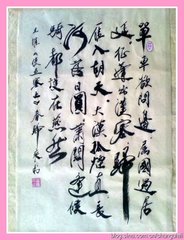 單車欲問邊屬國過居
延征蓬出漢塞歸
雁入胡天大漠孤烟直長
河落日圓蕭關逢候
騎都護在燕然